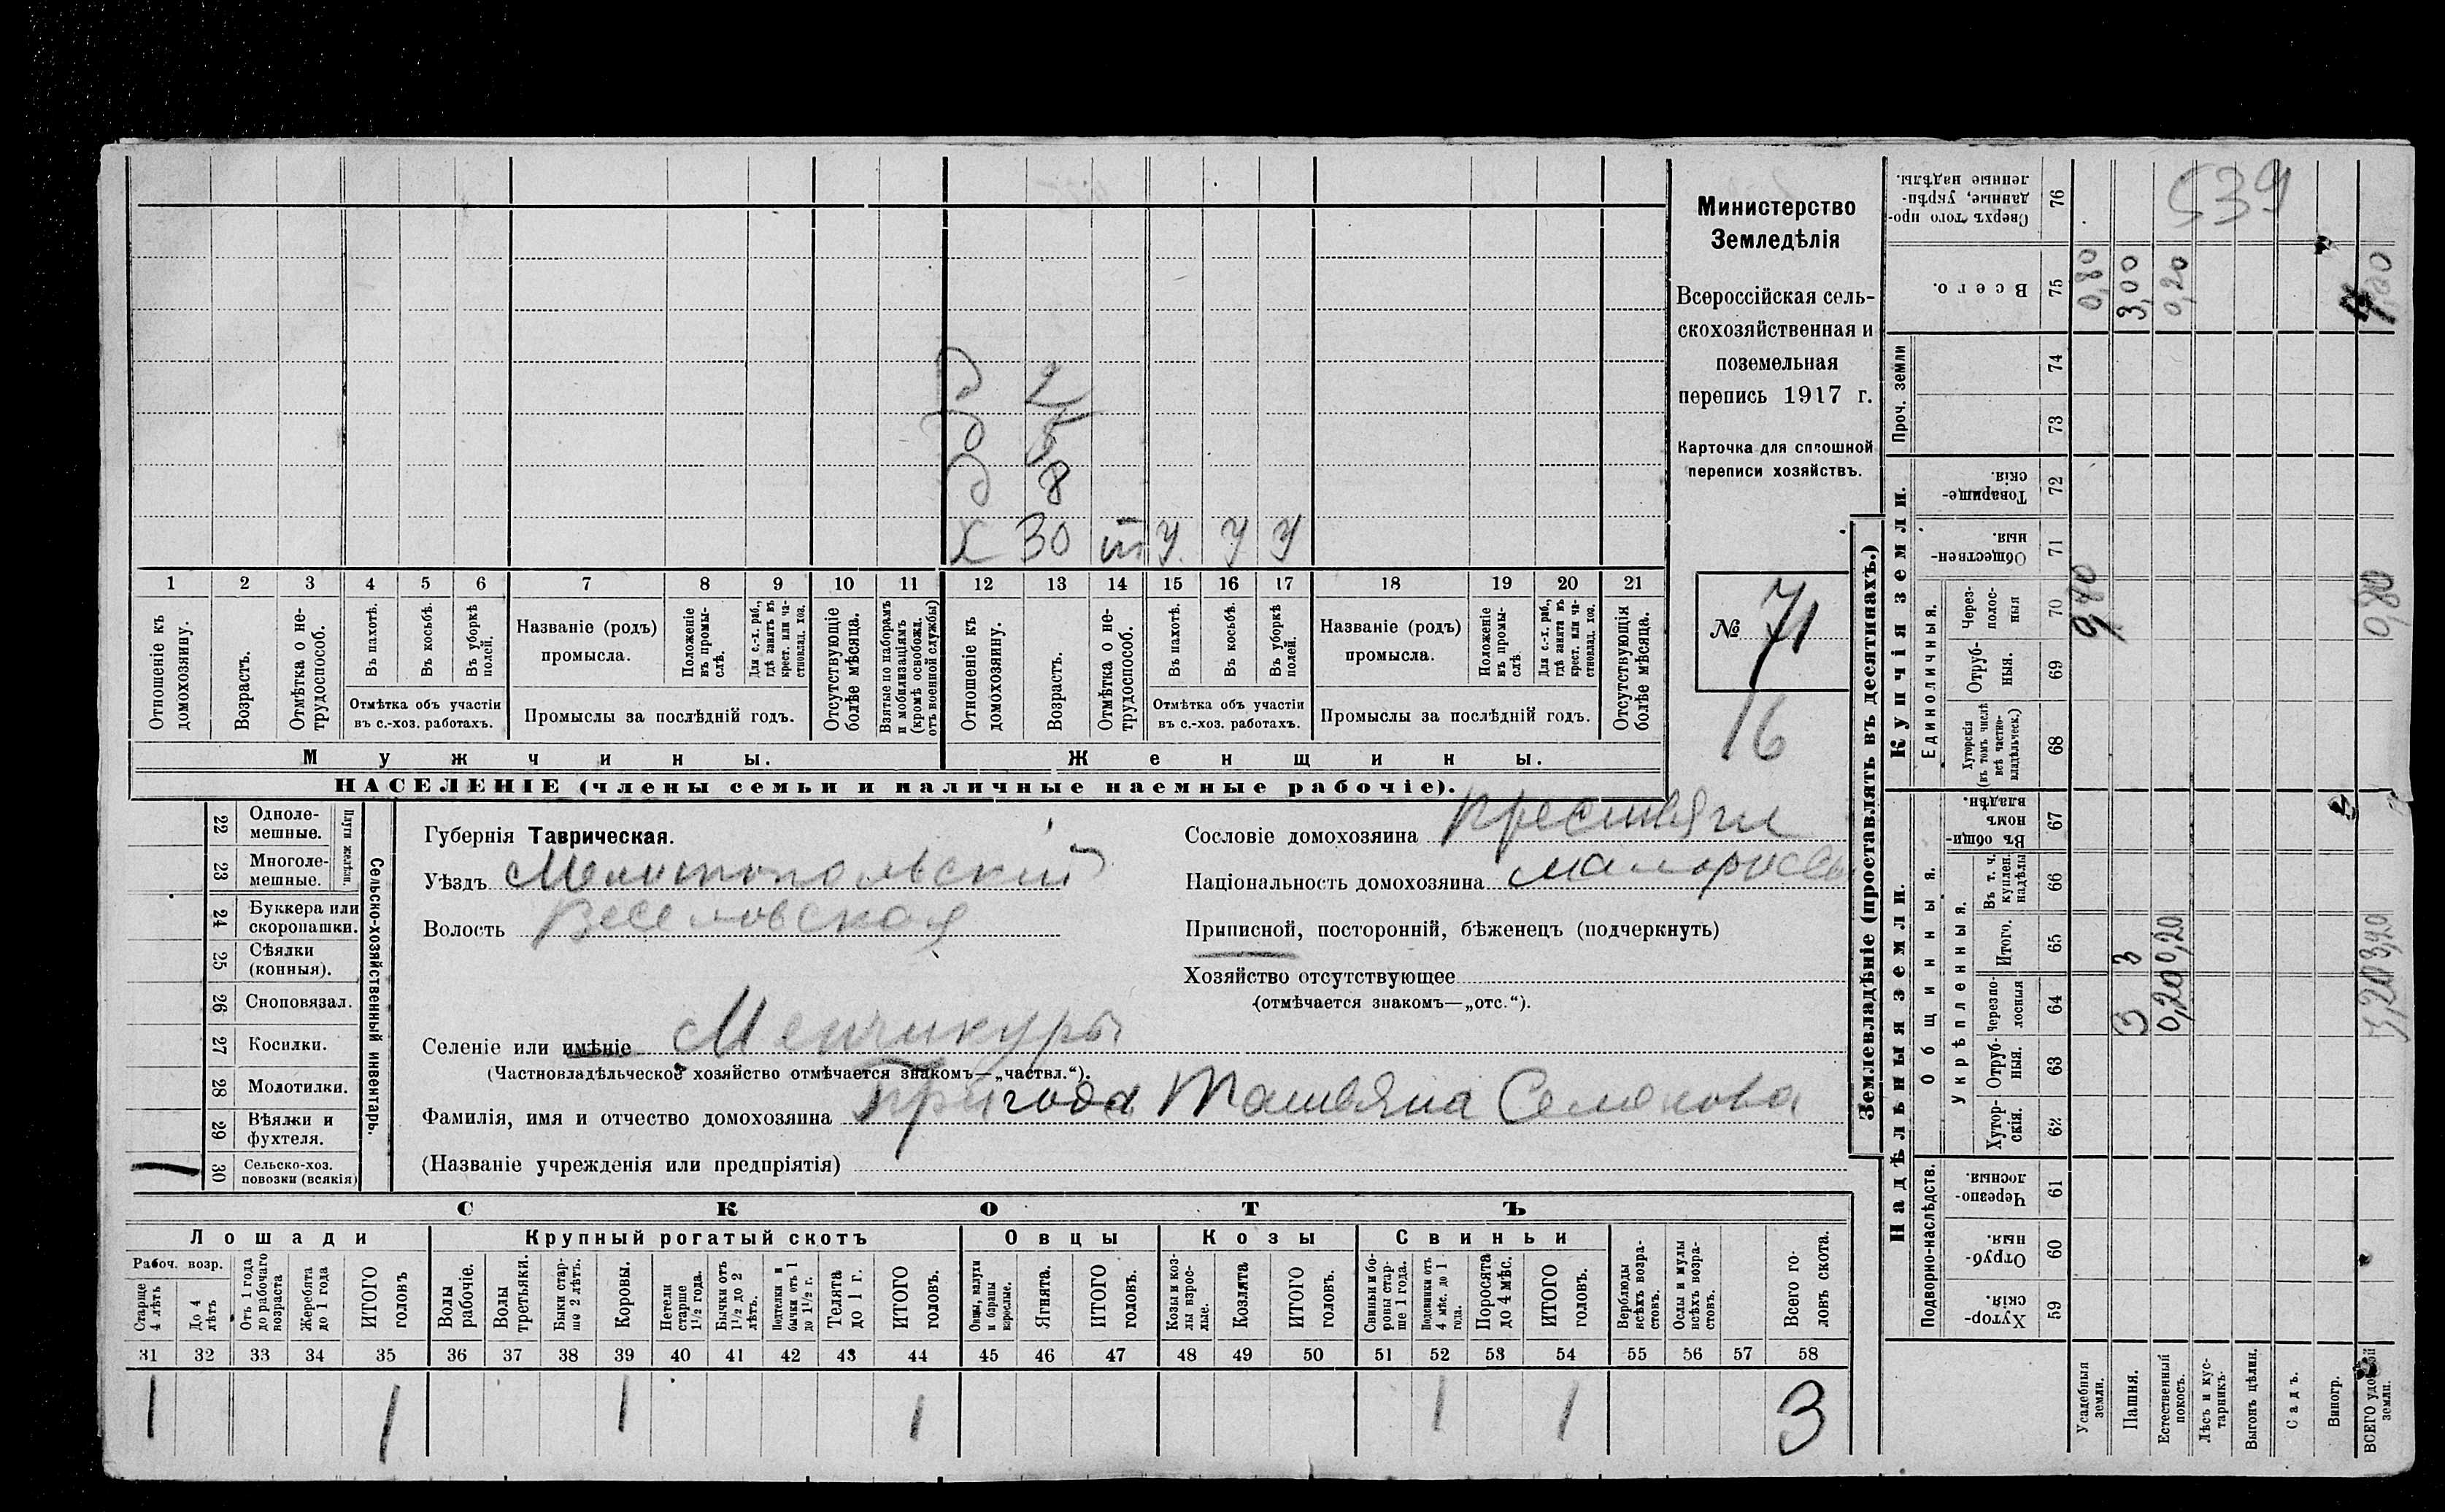 539
Д 2
Д 5
Д 8
Х 30 ш У У У
1 2 3 4 5 6 7 8 9 10 11 12 13 14 15 16 17 18 19 20 21
Отношеніе къ домохозяину.
Возрастъ.
Отмѣтка о не-трудоспособ.
Въ пахотѣ.
Въ косьбѣ.
Въ уборкѣ полей.
Отмѣтка объ участіи
въ с.-хоз. работахъ.
Названіе (родъ)
промысла.
Положеніе въ промы-слѣ.
Для с.-х. раб., гдѣ занятъ въ крест. или ча-стновлад. хоз.
Промыслы за послѣдній годъ.
Отсутствующіе болѣе мѣсяца.
Взятые по наборамъ и мобилизаціямъ (кромѣ освобожд. отъ военной службы)
Отношеніе къ домохозяину.
Возрастъ.
Отмѣтка о не-трудоспособ.
Въ пахотѣ.
Въ косьбѣ.
Въ уборкѣ полей.
Отмѣтка объ участіи
въ с.-хоз. работахъ.
Названіе (родъ)
промысла.
Положеніе въ промы-слѣ.
Для с.-х. раб., гдѣ занята въ крест. или ча-стновлад. хоз.
Промыслы за послѣдній годъ.
Отсутствующія болѣе мѣсяца.
Мужчины.
Женщины.
НАСЕЛЕНІЕ (члены семьи и наличные наемные рабочіе).
Министерство
Земледѣлія
Всероссійская сель-
скохозяйственная и
поземельная
перепись 1917 г.
Карточка для сплошной
переписи хозяйствъ.
№ 71
16
22 Одноле-мешные.
23 Многоле-мешные.
Плуги желѣзн.
24 Буккера или скоропашки.
25 Сѣялки (конныя).
26 Сноповязал.
27 Косилки.
28 Молотилки.
29 Вѣялки и фухтеля.
30 Сельско-хоз. повозки (всякія)
1
Сельско-хозяйственный инвентарь.
Губернія Таврическая.
Уѣздъ Мелитопольскій
Волость Веселовская
Сословіе домохозяина Крестьяни
Національность домохозяина малоросс
Приписной, посторонній, бѣженецъ (подчеркнуть)
Хозяйство отсутствующее
(отмѣчается знакомъ—„отс.“).
Селеніе или имѣніе Менчикуры
(Частновладѣльческое хозяйство отмѣчается знакомъ—„частвл.“).
Фамилія, имя и отчество домохозяина Пригода Татьяна Семенова
(Названіе учрежденія или предпріятія)
СКОТЪ
Лошади
Крупный рогатый скотъ
Овцы
Козы
Свиньи
Рабоч. возр.
Старше 4 лѣтъ
До 4 лѣтъ
Отъ 1 года до рабочаго возраста
Жеребята до 1 года
ИТОГО головъ
Волы рабочіе.
Волы третьяки.
Быки стар-ше 2 лѣтъ.
Коровы.
Нетели старше 1½ года.
Бычки отъ 1½ до 2 лѣтъ.
Подтелки и бычки отъ 1 до 1½ г.
Телята до 1 г.
ИТОГО головъ.
Овцы, валухи и бараны взрослые.
Ягнята.
ИТОГО головъ.
Козы и коз-лы взрос-лые.
Козлята
ИТОГО головъ.
Свиньи и бо-ровы стар-ше 1 года.
Подсвинки отъ 4 мѣс. до 1 года.
Поросята до 4 мѣс.
ИТОГО головъ.
Верблюды всѣхъ возра-стовъ.
Ослы и мулы всѣхъ возра-стовъ.
Всего го-ловъ скота.
31 32 33 34 35 36 37 38 39 40 41 42 43 44 45 46 47 48 49 50 51 52 53 54 55 56 57 58
1 1 1 1 1 1 3
Землевладѣніе (проставлять въ десятинахъ.)
Надѣльныя земли.
Купчія земли.
Проч. земли
Подворно-наслѣдств.
Общинныя.
Укрѣпленныя.
Единоличныя.
Сверхъ того про-данные, укрѣп-ленные надѣлы. 76
Всего. 75 0,80 3,00 0,20
74
73
Товарище-скія. 72
Обществен-ныя. 71
Через-полос-ныя 70
Отруб-ныя. 69
Хуторскія (въ томъ числѣ всѣ частно-владѣльческ.) 68
Въ общи-номъ владѣн. 67
Въ т. ч. куплен. надѣлы 66
Итого. 65 3 0,20 3,20
Черезпо-лосныя 64 3 0,20 3,20
Отруб-ныя. 63
Хутор-скія. 62
Черезпо-лосныя. 61
Отруб-ныя. 60
Хутор-скія. 59
Усадебныя земли.
Пашня.
Естественный покосъ.
Лѣсъ и кус-тарникъ.
Выгонъ цѣлин.
Садъ.
Виногр.
ВСЕГО удобной земли.